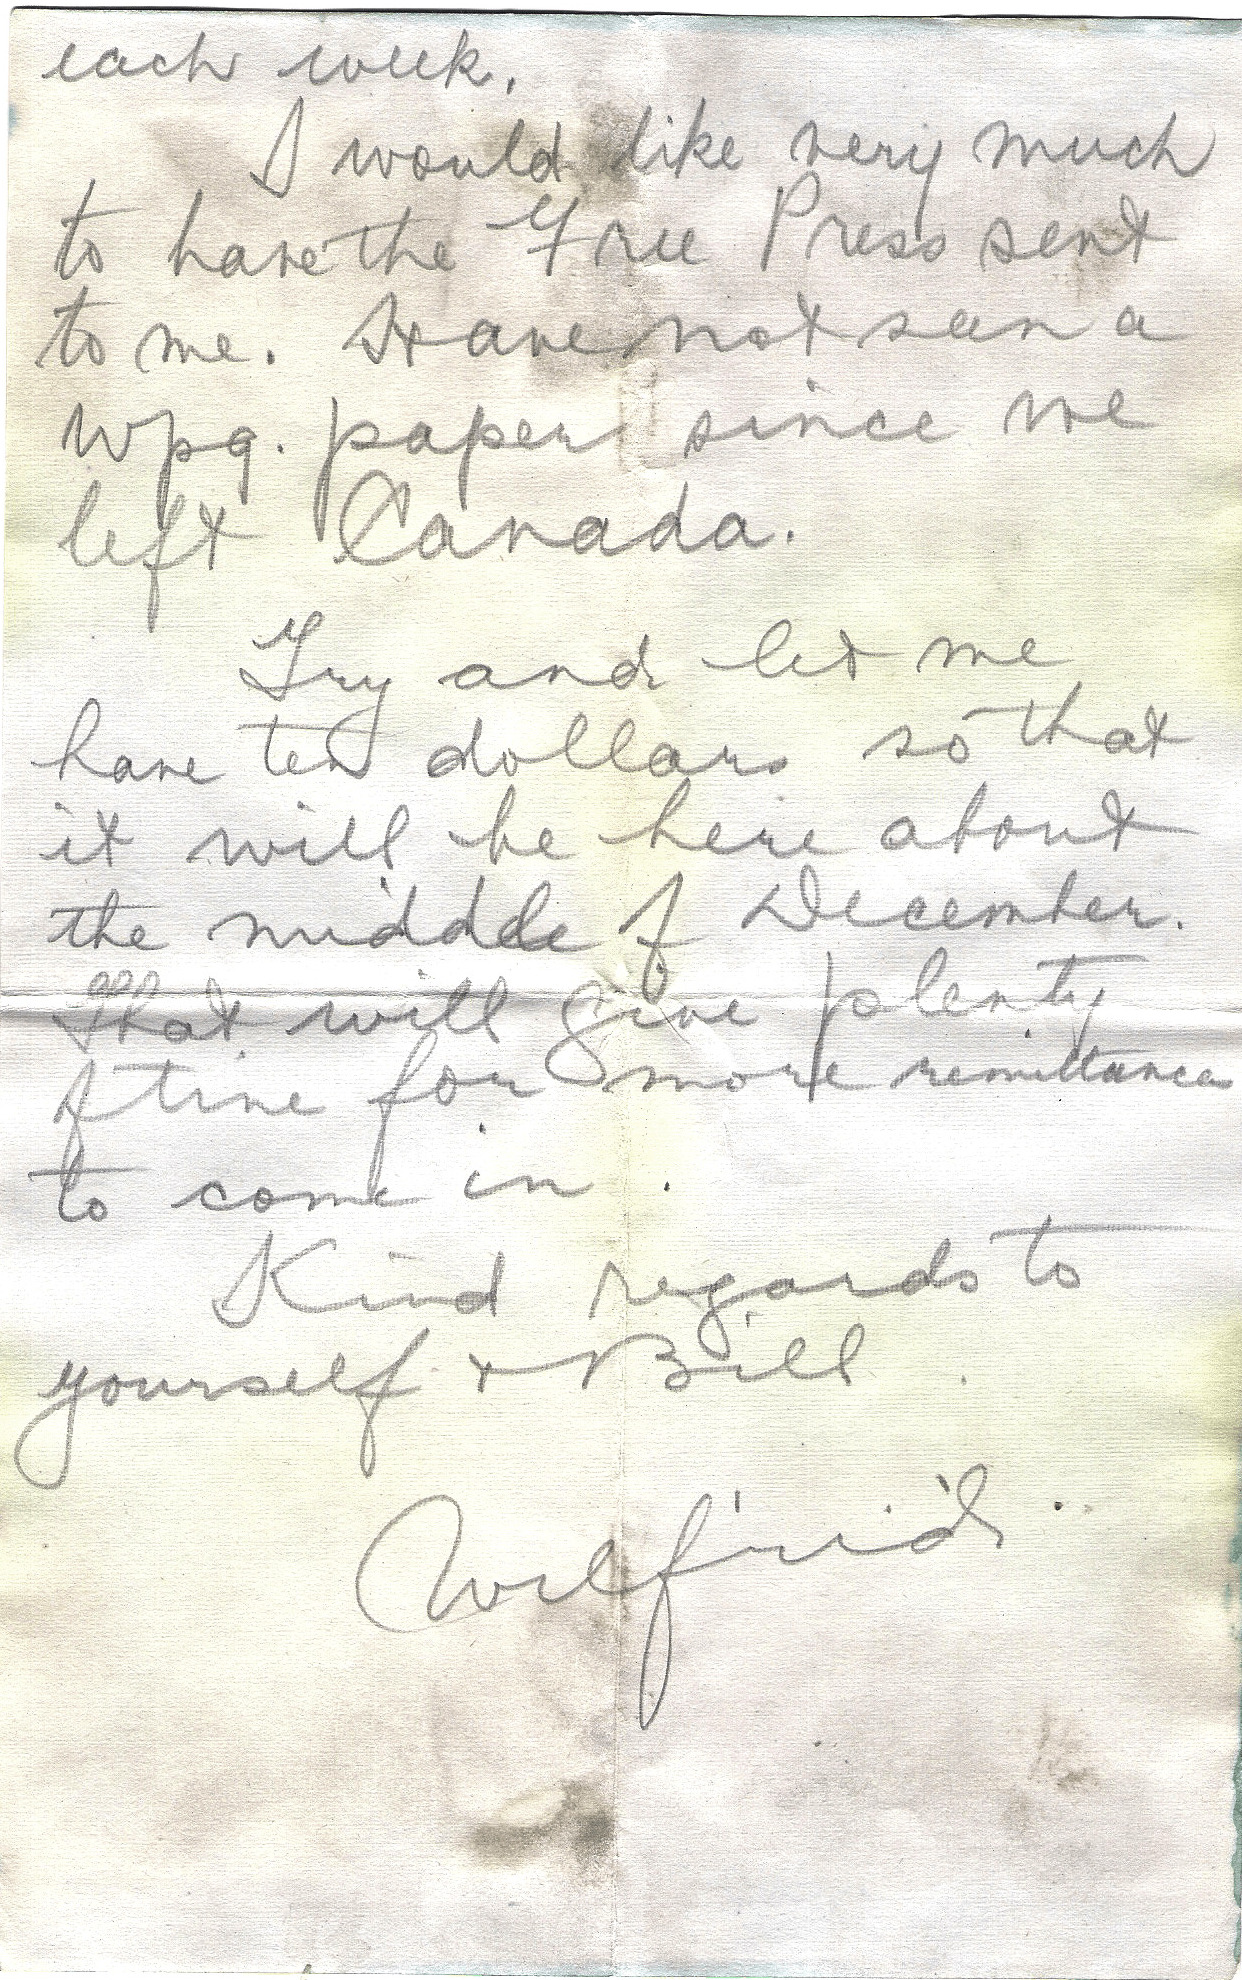 each week.
I would like very much
to have the Free Press sent
to me. Have not seen a
Wpg. paper since we
left Canada.
Try and let me
have ten dollars so that
it will be here about
the middle of December.
That will give plenty
of time for more remittances
to come in.
Kind regards to
yourself + Bill
Wilfrid.